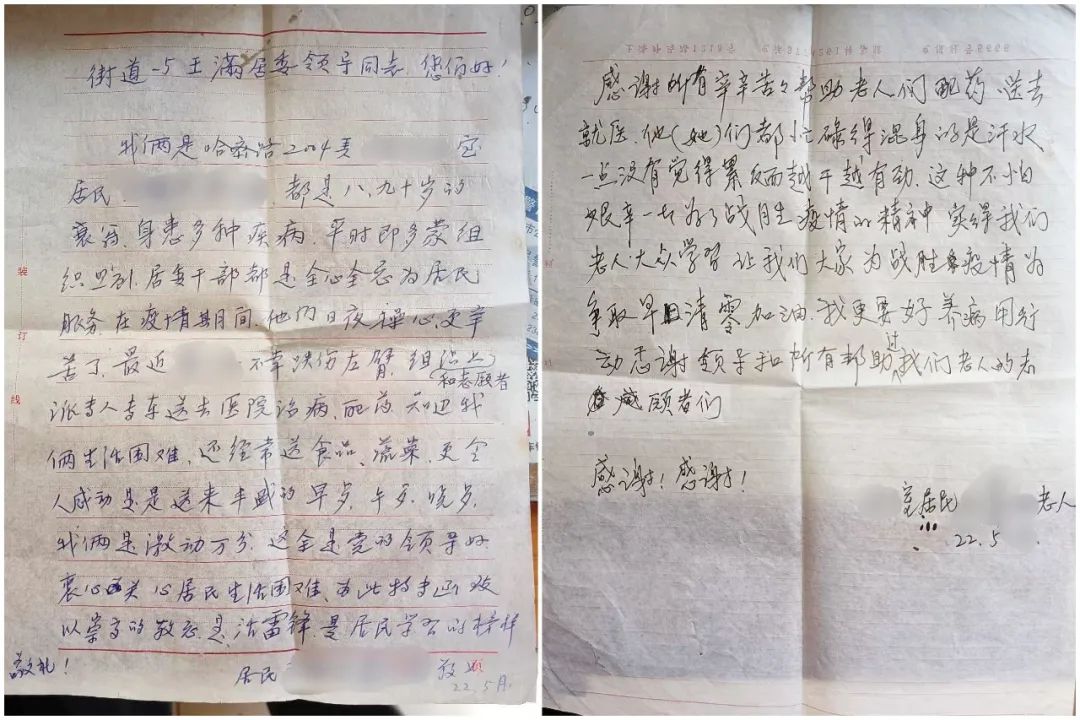 街道-与王满居委领导同志.您们好！
我俩是哈密路2004弄 室
居民. .都是八、九十岁的
衰翁.身患多种疾病.平时即多蒙组
织照顾.居委干部都是全心全意为居民
服务.在疫情期间.他们日夜操心.更辛
苦了.最近 不幸跌伤左臂.组织上
和志愿者
派专人专车送去医院治病.配药.知道我
俩生活困难、还经常送食品、蔬菜.更令
人感动是是送来丰盛的早点,午 ,晚 .
我俩是激动万分.这全是党的领导好
衷心 关心居民生活困难、为此特书函致
以崇高的敬意.是活雷锋.是居民学习的榜样
敬礼！
居民 敬
22.5月.
感谢所有辛辛苦苦帮助老人们配药.送去
就医.他(她)们都忙碌得混身 是汗水
一点没有觉得累反而越干越有劲.这种不怕
艰辛一 为了战胜疫情的精神.实得我们
老人大众学习.让我们大家为战胜疫情为
争取早日清零加油.我更要好养病用行
动 谢领导和所有帮助过我们老人的志
愿者们
感谢！感谢！
室居民 老人
22.5 .